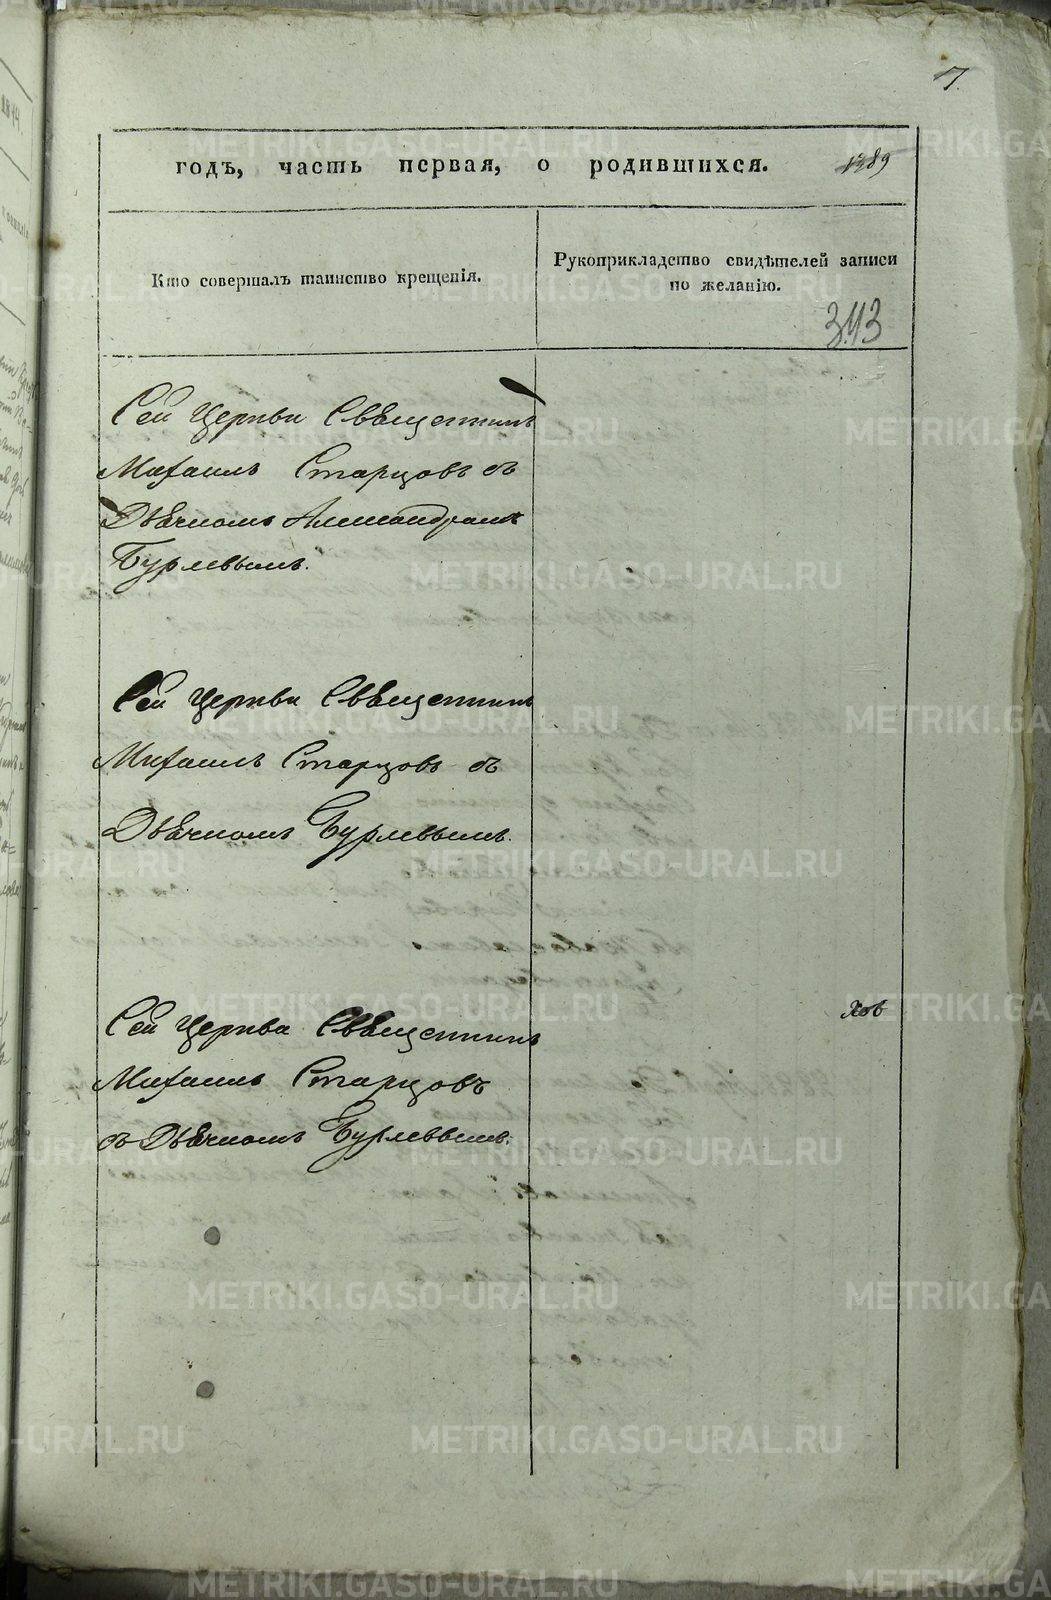 7.
годъ, часть первая, о родившихся.
1389
Кто совершалъ таинство крещенія.
Рукоприкладство свидѣтелей записи
по желанію.
343
Сей Церкви Священникъ
Михаилъ Старцовъ съ
Дьячкомъ Александромъ
Бурлевымъ.
Сей Церкви Священникъ
Михаилъ Старцовъ съ
Дьячкомъ Бурлевымъ.
Сей Церкви Священникъ
Михаилъ Старцовъ
съ Дьячкомъ Бурлевымъ.
METRIKI.GASO-URAL.RU